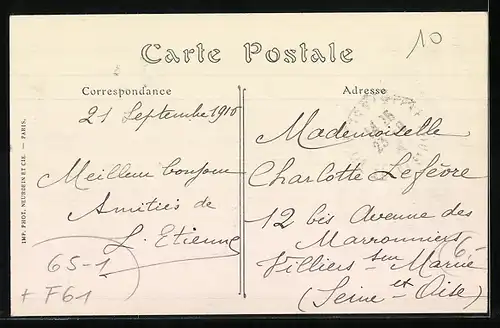 10
Carte Postale
Correspondance
Adresse
21 Septembre 1910
Meilleur bonjour
Amitiés de
L. Etienne
Mademoiselle
Charlotte Lefèvre
12 bis Avenue des
Marronniers
Villiers sur Marne
(Seine et Oise)
6-
65-1
+ F61
IMP. PHOT. NEURDEIN ET CIE. — PARIS.